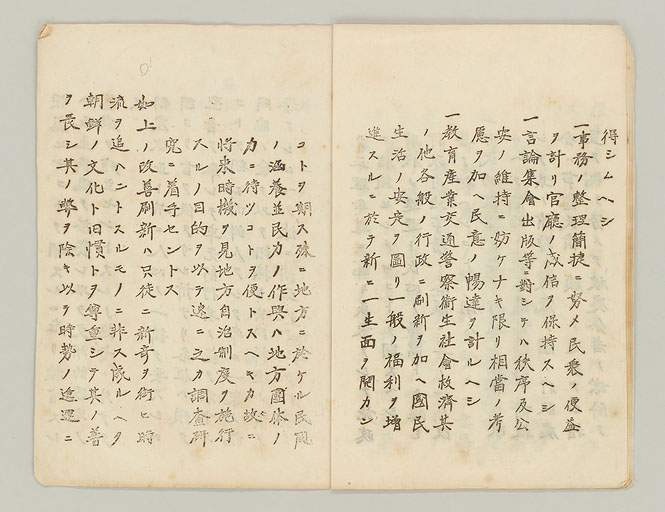 得シムヘシ
一事務ノ整理簡捷ニ努メ民衆ノ便益
ヲ計リ官廳ノ威信ヲ保持スヘシ
一言論集會出版等ニ對シテハ秩序及公
安ノ維持ニ妨ケナキ限リ相當ノ考
慮ヲ加ヘ民意ノ暢達ヲ計ルヘシ
一教育産業交通警察衛生社會救濟其
ノ他各般ノ行政ニ刷新ヲ加ヘ國民
生活ノ安定ヲ圖リ一般ノ福利ヲ増
進スルニ於テ新ニ一生面ヲ開カン
コトヲ期ス殊ニ地方ニ於ケル民風
ノ涵養並民力ノ作興ハ地方團体ノ
力ニ待ツコトヲ便トスヘキカ故ニ
将来時機ヲ見地方自治制度ヲ施行
スルノ目的ヲ以テ速ニ之カ調査研
究ニ着手セントス
如上ノ改善刷新ハ只徒ニ新奇ヲ衒ヒ時
流ヲ追ハントスルモノニ非ス成ルヘク
朝鮮ノ文化ト旧慣トヲ尊重シテ其ノ善
ヲ長シ其ノ弊ヲ除キ以テ時勢ノ進運ニ